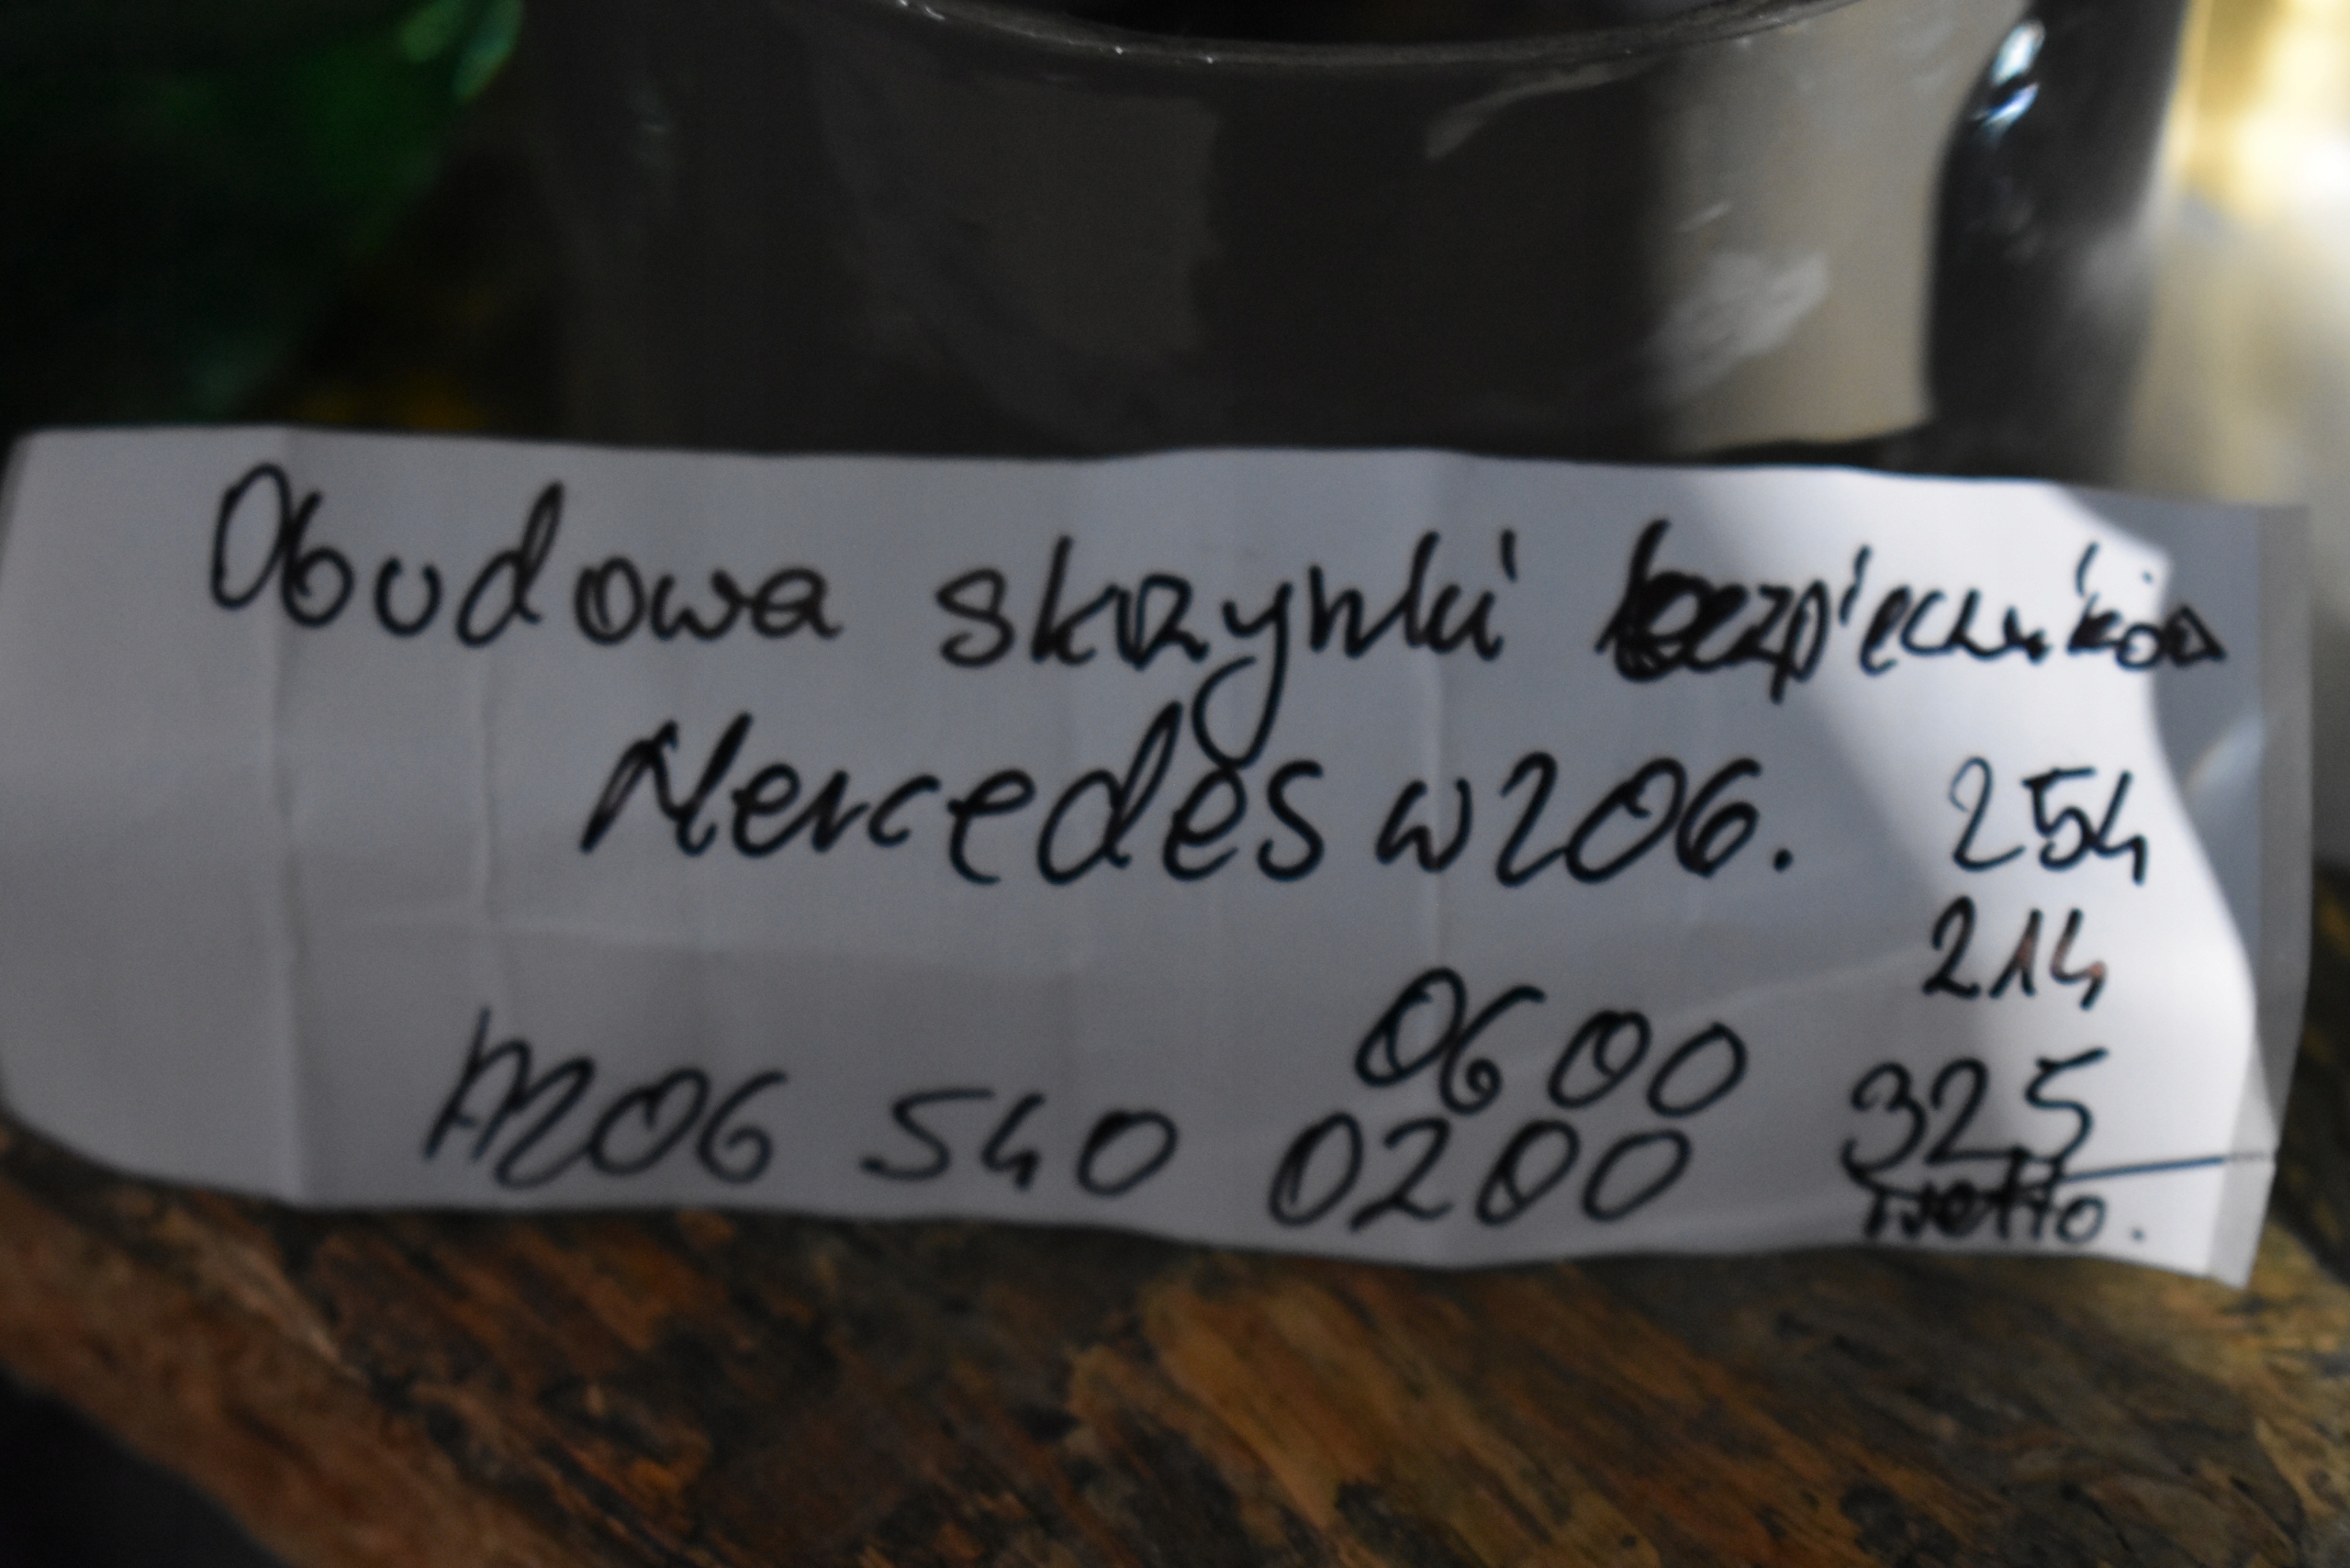 Obudowa skrzynki bezpieczników
Mercedes w206. 254
214
0600
M206 540 0200 325
netto.